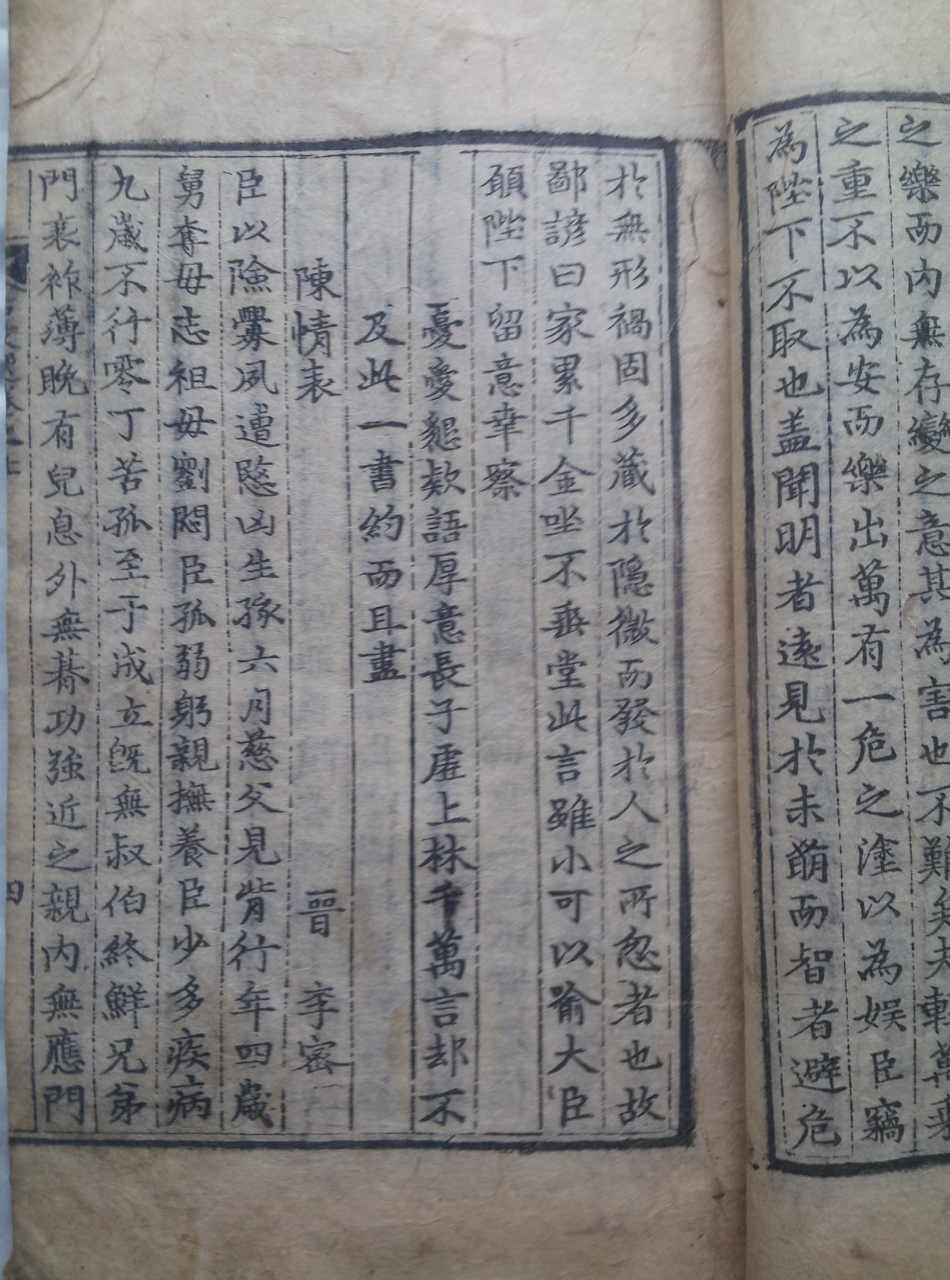 之樂而內無存變之意其為害也不難矣夫輕萬乘
之重不以為安而樂出萬有一危之塗以為娛臣竊
為陛下不取也盖聞明者遠見於未萠而智者避危
於無形禍固多藏於隱微而發於人之所忽者也故
鄙諺曰家累千金坐不垂堂此言雖小可以喻大臣
願陛下留意幸察
憂愛懇欵語厚意長子虛上林千萬言却不
及此一書約而且盡
陳情表 晉 李宻
臣以險釁夙遭愍凶生孩六月慈父見背行年四歲
舅奪母志祖母劉悶臣孤弱躬親撫養臣少多疾病
九歲不行零丁苦孤至于成立旣無叔伯終鮮兄弟
門衰祚薄晩有兒息外無朞功強近之親內無應門
四